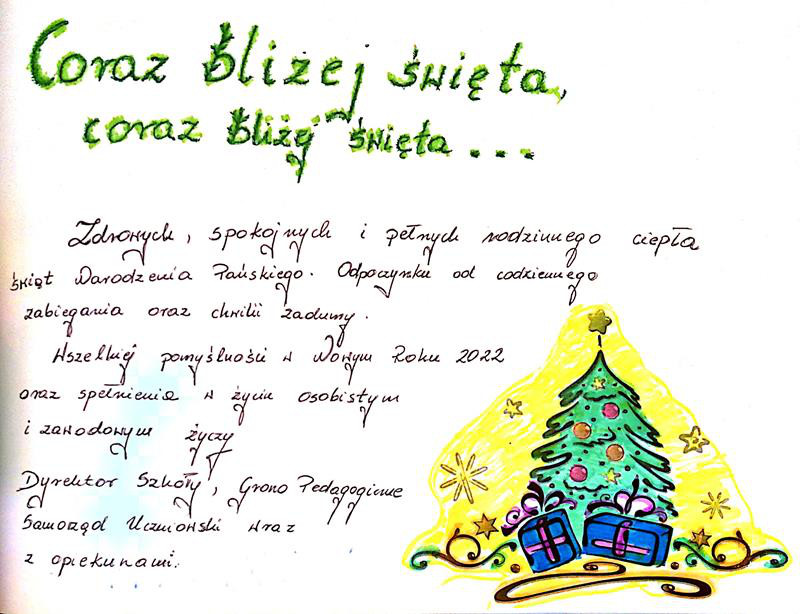 Coraz bliżej święta,
coraz bliżej święta...
Zdrowych, spokojnych i pełnych rodzinnego ciepła
świąt Narodzenia Pańskiego. Odpoczynku od codziennego
zabiegania oraz chwili zadumy.
Wszelkiej pomyślności w Nowym Roku 2022
oraz spełnienia w życiu osobistym
i zawodowym życzy
Dyrektor Szkoły, Grono Pedagogiczne
Samorząd Uczniowski wraz
z opiekunami.